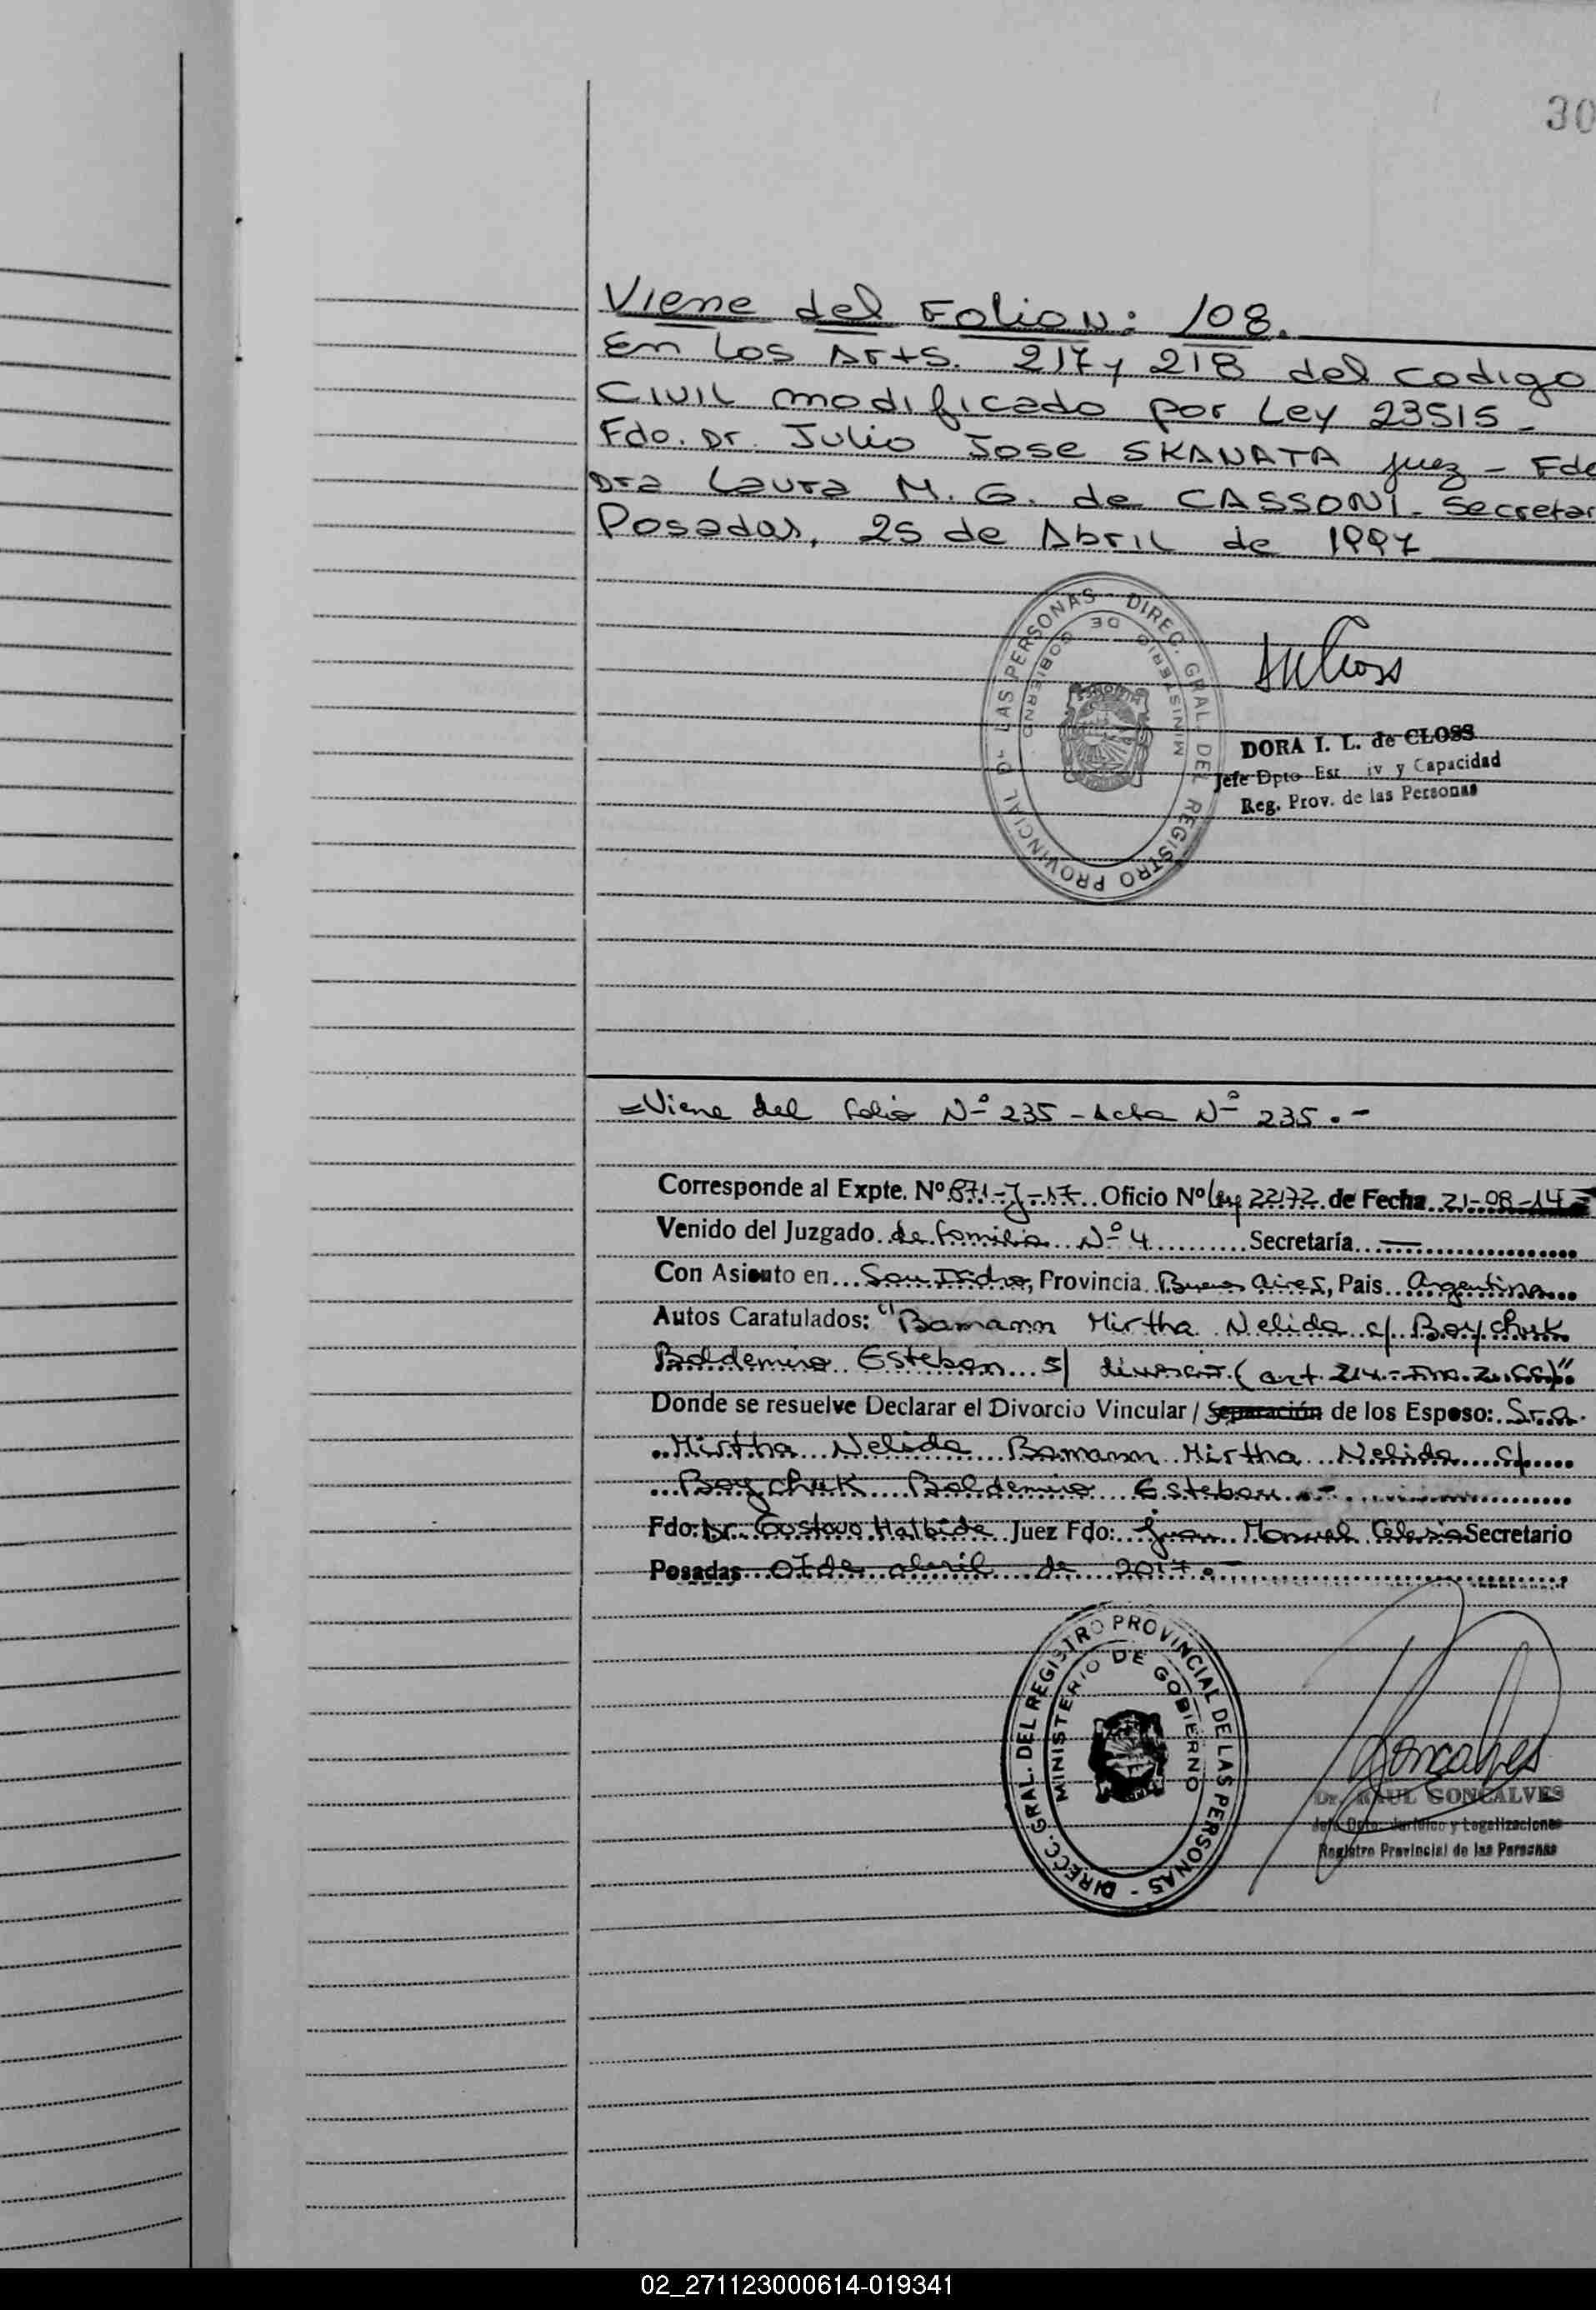 30
Viene del Folio N: 108.
En Los Arts. 217 y 218 del codigo
CIVIL modificado por Ley 23515 -
Fdo. Dr. Julio Jose SKANATA juez - Fdo
Dra Laura M. G. de CASSONI - Secretar
Posadas, 25 de Abril de 1997
DIREC. GRAL. DEL REGISTRO PROVINCIAL D- LAS PERSONAS -
MINISTERIO DE GOBIERNO
DORA I. L. de CLOSS
Jefe Dpto Est iv y Capacidad
Reg. Prov. de las Personas
=Viene del folio Nº 235 - Acta Nº 235.-
Corresponde al Expte. Nº 871-J-17 Oficio Nº Ley 22172 de Fecha 21-08-14
Venido del Juzgado de familia Nº 4 Secretaría —
Con Asiento en San Isidro, Provincia Buenos Aires, Pais Argentina
Autos Caratulados: "Bamann Mirtha Nelida c/ Boychuk
Boldemiro Esteban s/ divorcio (art. 214 - 2 CC)"
Donde se resuelve Declarar el Divorcio Vincular / Separación de los Esposo: Sra.
Mirtha Nelida Bamann Mirtha Nelida c/
Boychuk Boldemiro Esteban.-
Fdo: Dr. Gustavo Halbide Juez Fdo: Juan Manuel Secretario
Posadas 07 de abril de 2017.-
DIRECC. GRAL. DEL REGISTRO PROVINCIAL DE LAS PERSONAS -
MINISTERIO DE GOBIERNO
Goncalves
Dr. RAUL GONCALVES
Jefe Dpto. Jurídico y Legalizaciones
Registro Provincial de las Personas
02_271123000614-019341